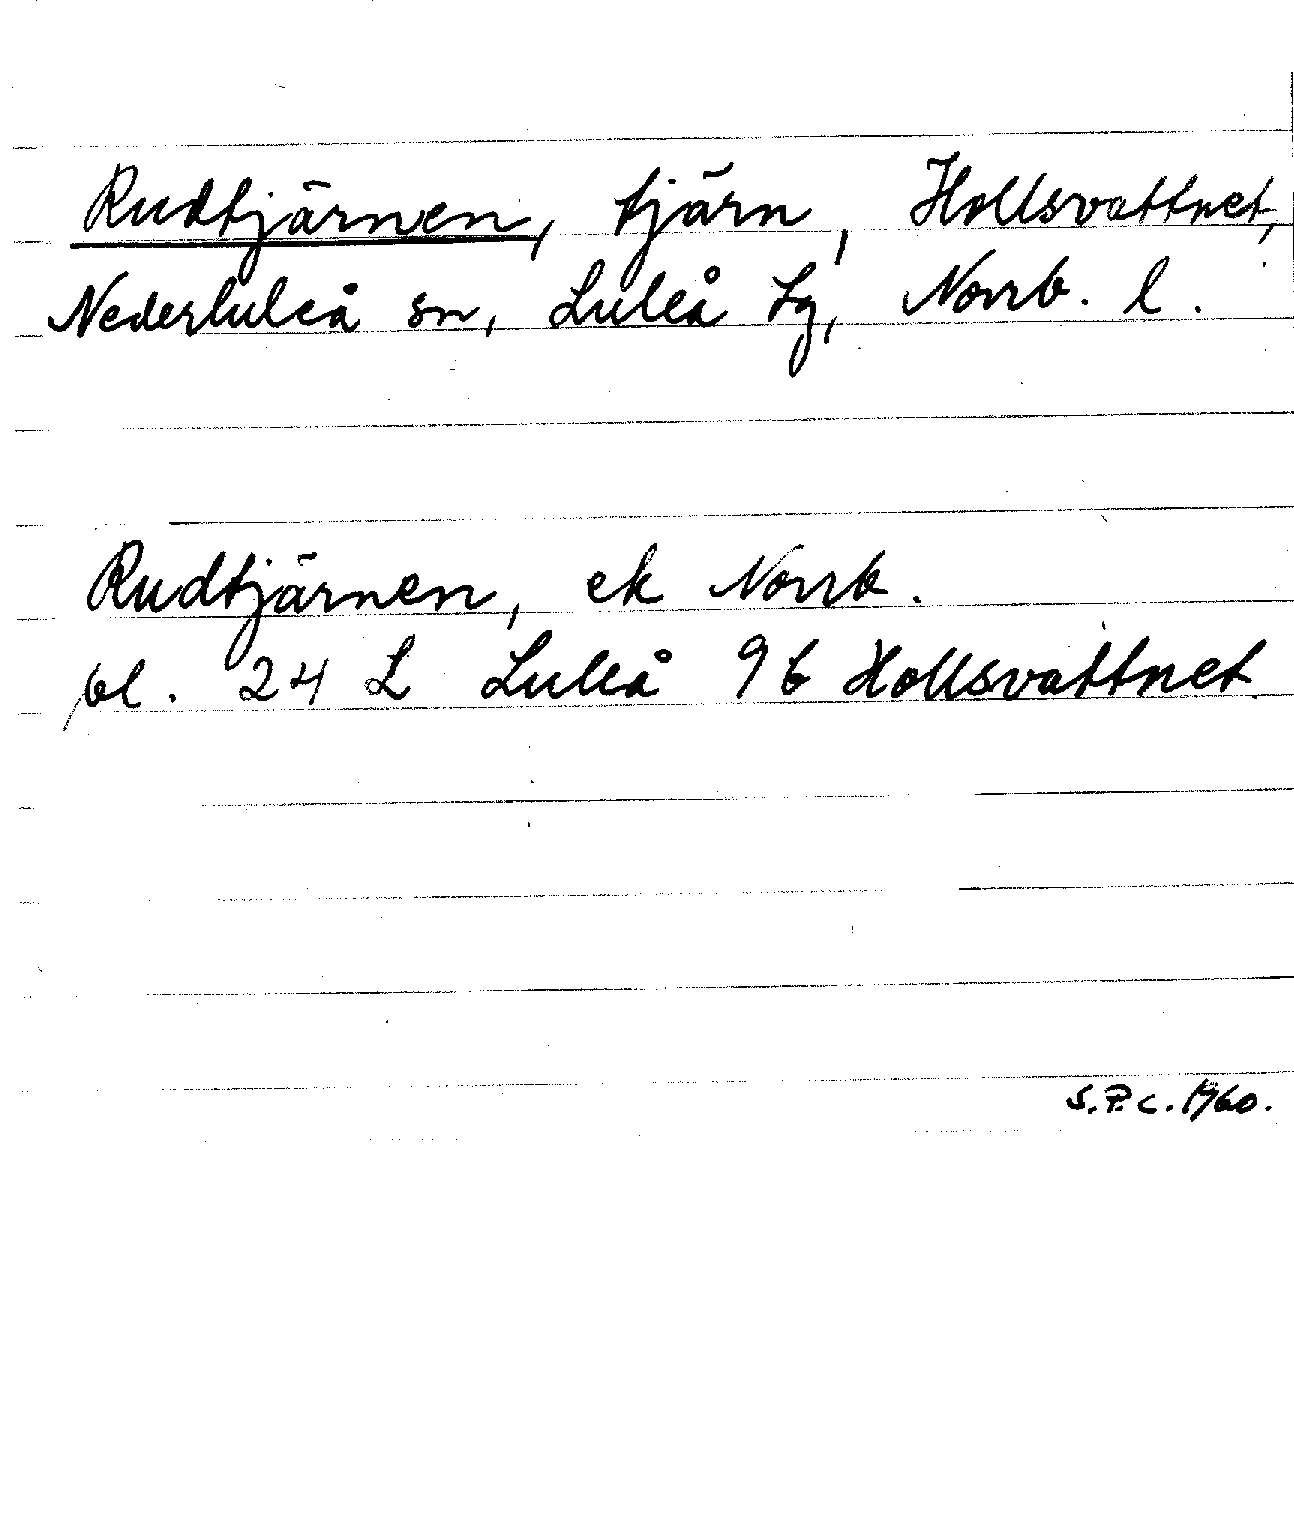 Rudtjärnen, tjärn, Hollsvattnet,
Nederluleå sn, Luleå tg, Norrb. l.
Rudtjärnen, ek Norrb.
bl. 24 L Luleå 9b Hollsvattnet
S.P.C. 1960.